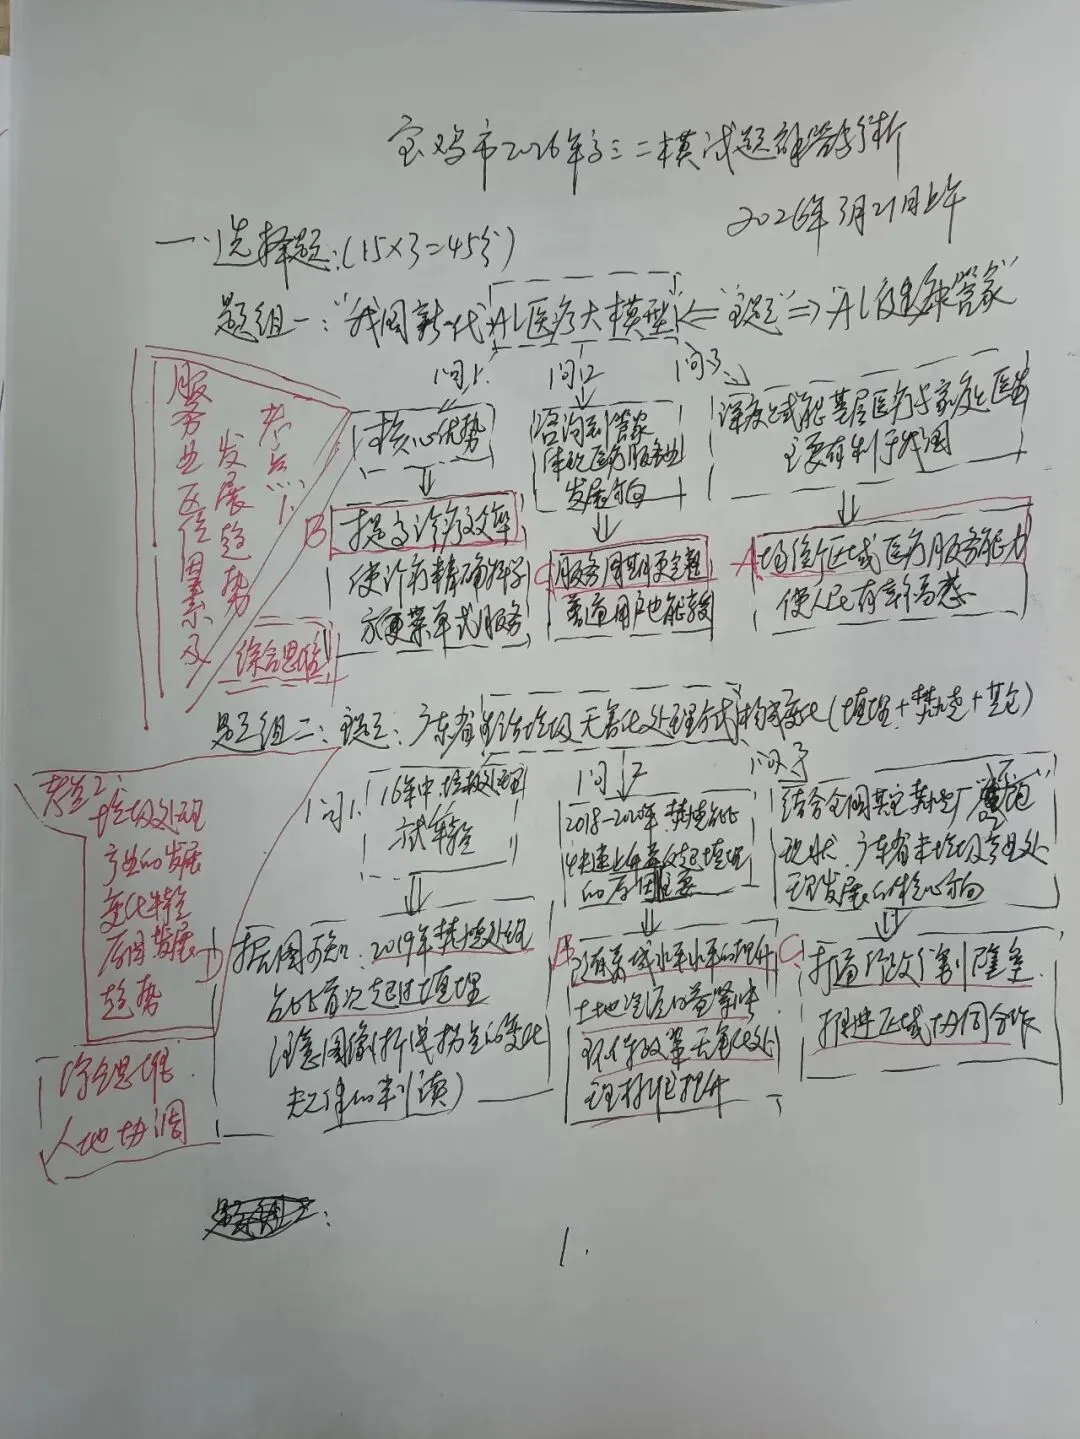 宝鸡市2026年高三二模试题解答分析
2026年3月21日上午
一、选择题：(15×3=45分)
题组一：“我国新一代AI医疗大模型”⇐“主题”⇒“AI健康管家”
问1.
问2
问3
核心优势
咨询到管家
体现医疗服务业
发展方向
深度赋能基层医疗与家庭医生
主要有利于我国
B 提高诊疗效率
使诊疗精确科学
方便菜单式服务
C 服务周期更完整
普通用户也能
A 增强区域医疗服务能力
使人民有幸福感
考点1.
服务业区位因素及
发展趋势
综合思维
题组二：主题：广东省生活垃圾无害化处理方式构成变化(填埋+焚烧+其它)
问1
问2
问3
16年中，垃圾处理
方式特征
2018-2020年，焚烧占比
快速上升并超过填埋
的原因主要
结合全国其它焚烧厂“  ”
现状，广东省未来垃圾专业处
理发展的核心方向
D 据图可知：2019年焚烧处理
占比首次超过填埋
注意图像(折线拐点的变化
判读)
B
土地资源日益紧缺
环保政策无害化处
理标准提升
C 打通行政分割障碍
推进区域协同合作
考点2
垃圾处理
产业的发展
变化特征
原因发展
趋势
综合思维
人地协调
1.